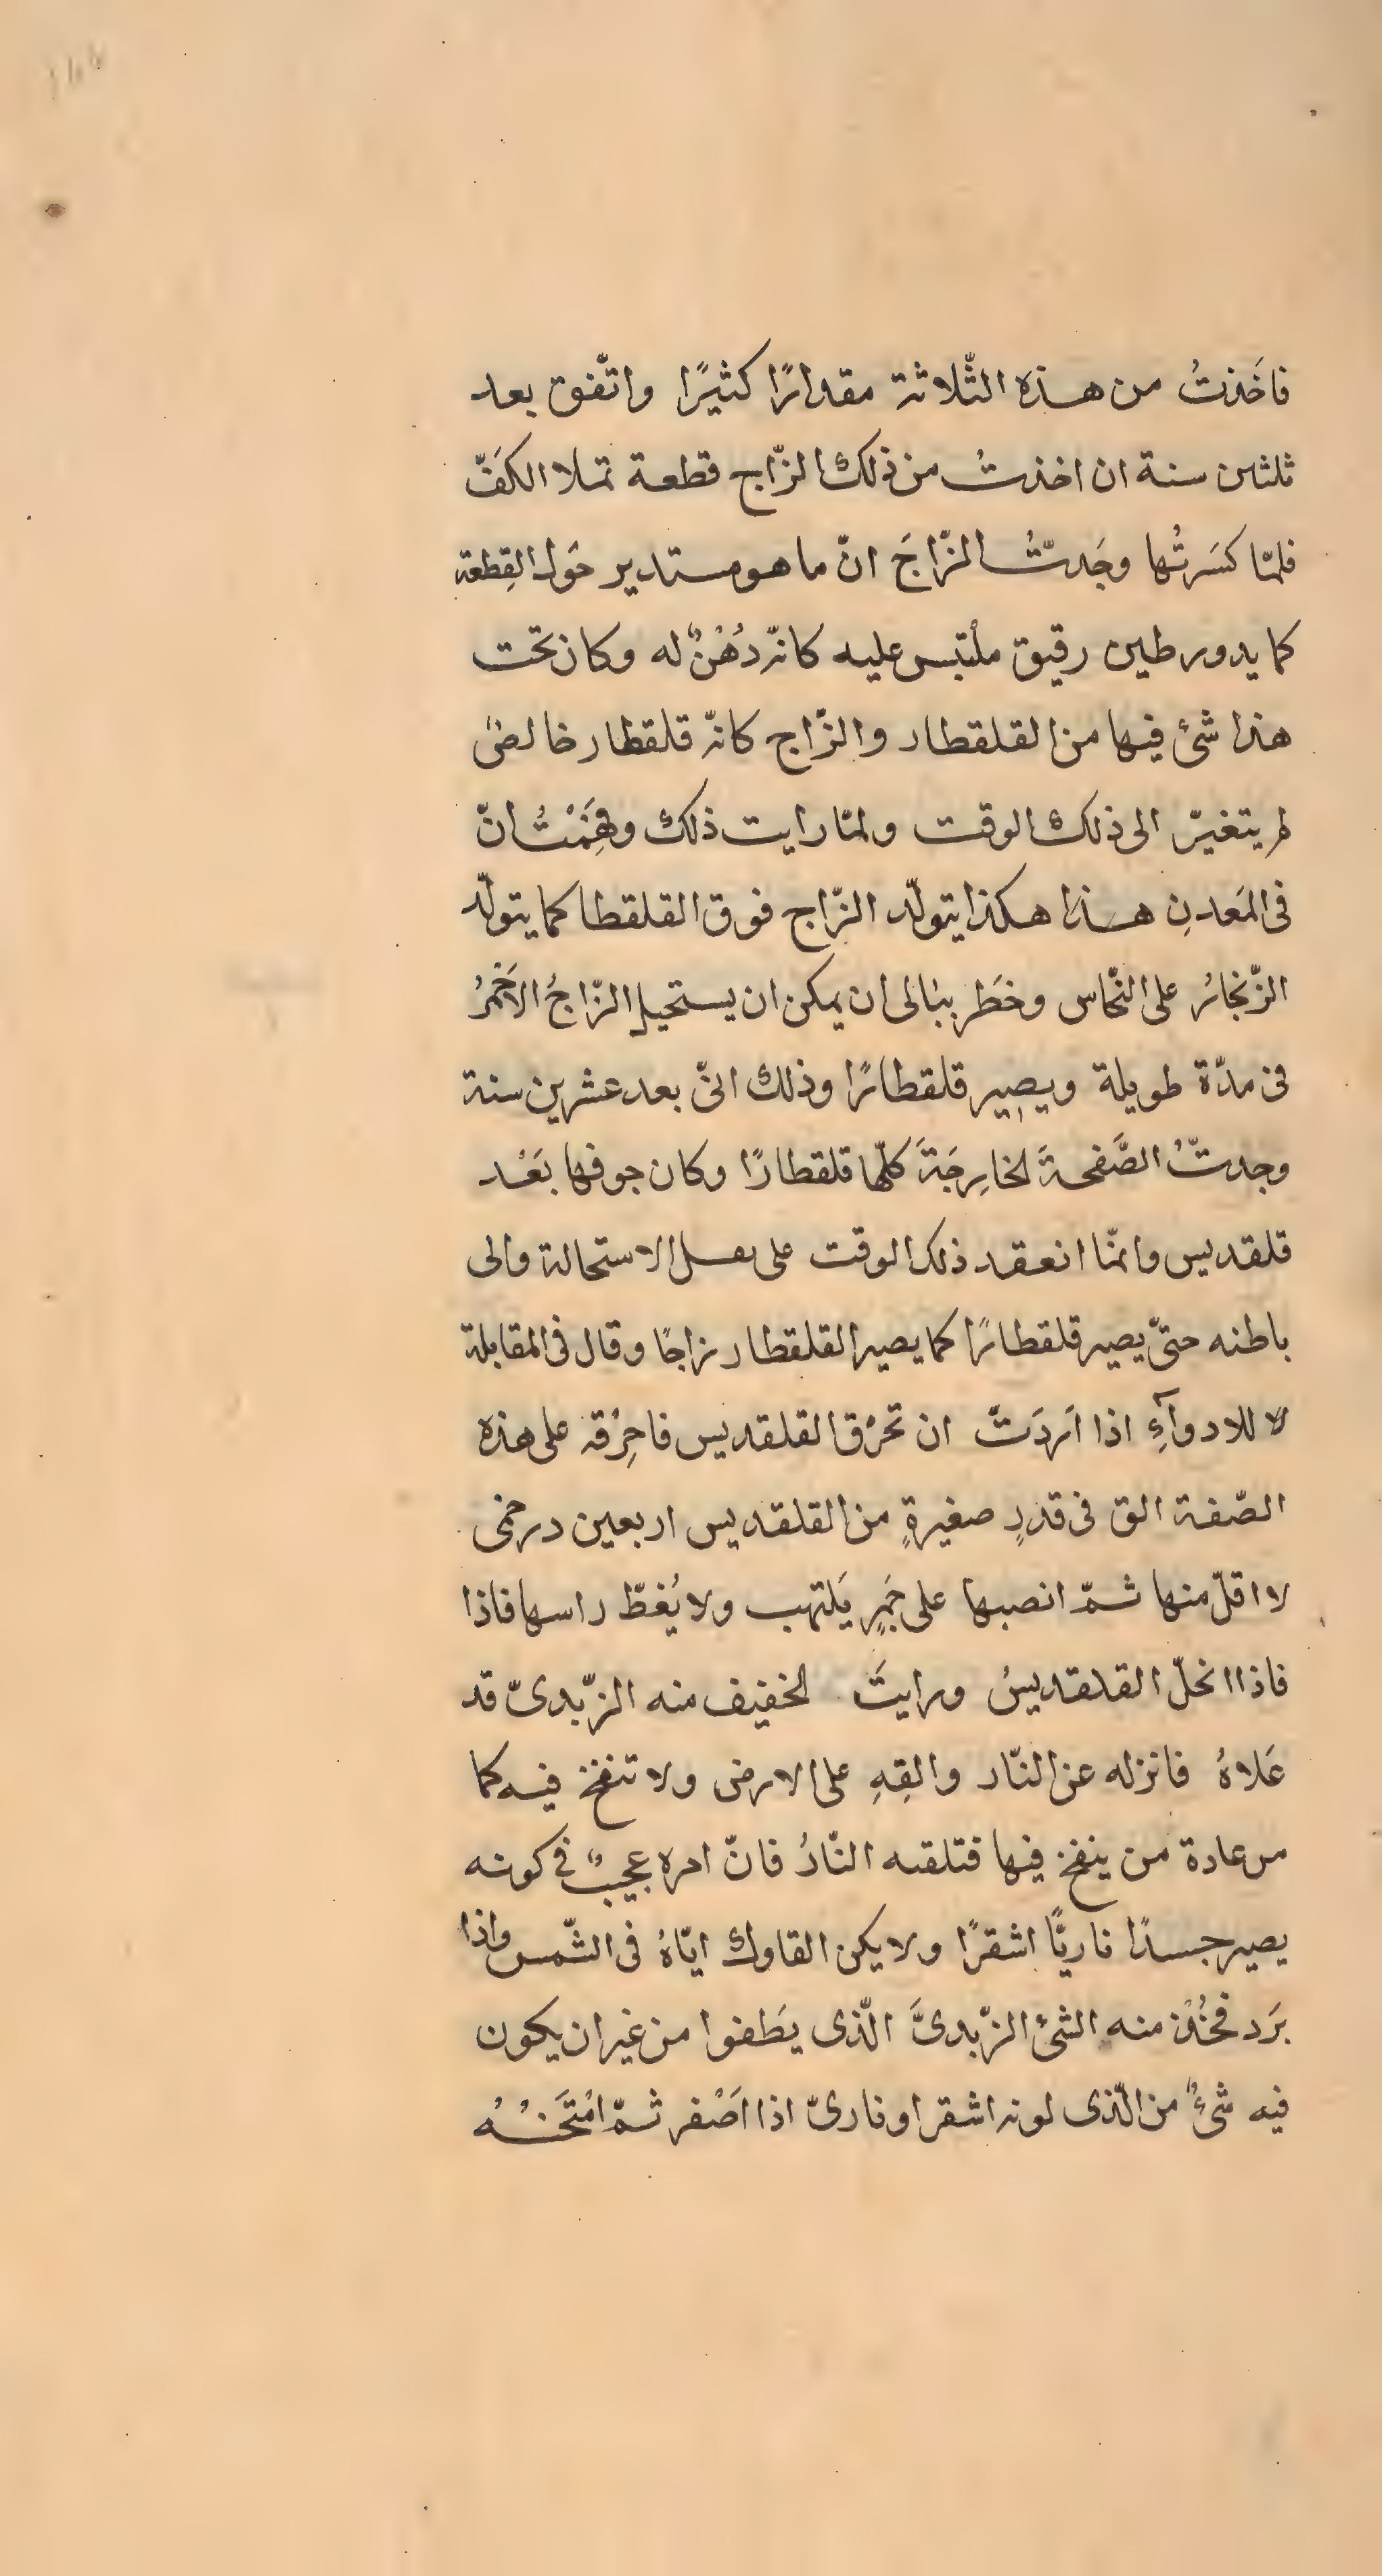 فاخَذتُ من هذه الثّلاثة مقدارًا كثيرًا واتّفق بعد
ثلثين سنة ان اخذتُ من ذلك الزّاج قطعة تملا الكفّ
فلمّا كسَرتُها وجَدتّ الزّاجَ انّ ما هو مستدير حَول القِطعة
كما يدور طين رقيق ملتبس عليه كانّه دُهْنٌ له وكان تحت
هذا شئ فيها من القلقطار والزّاج كانّه قلقطار خالصٌ
لم يتغيّر الى ذلك الوقت ولمّا رايت ذلك وفهِمْتُ انّ
فى المَعدنِ هذا هكذا يتولّد الزّاج فوق القلقطا كما يتولّد
الزّنجارُ على النّحاس وخطَر ببالى ان يمكن ان يستحيل الزّاجُ الاَحمرُ
فى مدّة طويلة ويصير قلقطارًا وذلك انّى بعد عشرين سنة
وجدتّ الصَّفحةَ الخارِجَةَ كلّها قلقطارًا وكان جوفها بَعْد
قلقديس وانمّا انعقد ذلك الوقت على الاستحالة والى
باطنه حتىّ يصير قلقطارًا كما يصير القلقطار زاجًا وقال فى المقابلة
للادوآءِ اذا اَردَتّ ان تحرق القلقديس فاحرِقه على هذه
الصّفة الق فى قدرٍ صغيرةٍ من القلقديس اربعين درخمى
لا اقلّ منها ثمّ انصبها على جَمرٍ يَلتهب ولا يُغطّ راسها فاذا
فاذا انحلّ القلقديسُ ورايتَ الخفيف منه الزّبدىّ قد
عَلاهُ فانزله عن النّار والقِهِ على الارض ولا تنفخ فيه كما
من عادة من ينفخ فيها فتلقه النّارُ فانّ امره عجيبٌ فى كونه
يصير جسدًا ناريًّا اشقرًا ولا يكن القاوك ايّاهُ فى الشّمس واذا
برَد فخُذْ منه الشئ الزّبدىَّ الّذى يطفوا من غير ان يكون
فيه شئٌ من الّذى لونه اشقر او نارىّ اذا اصْفر ثمّ امْتَحنْهُ